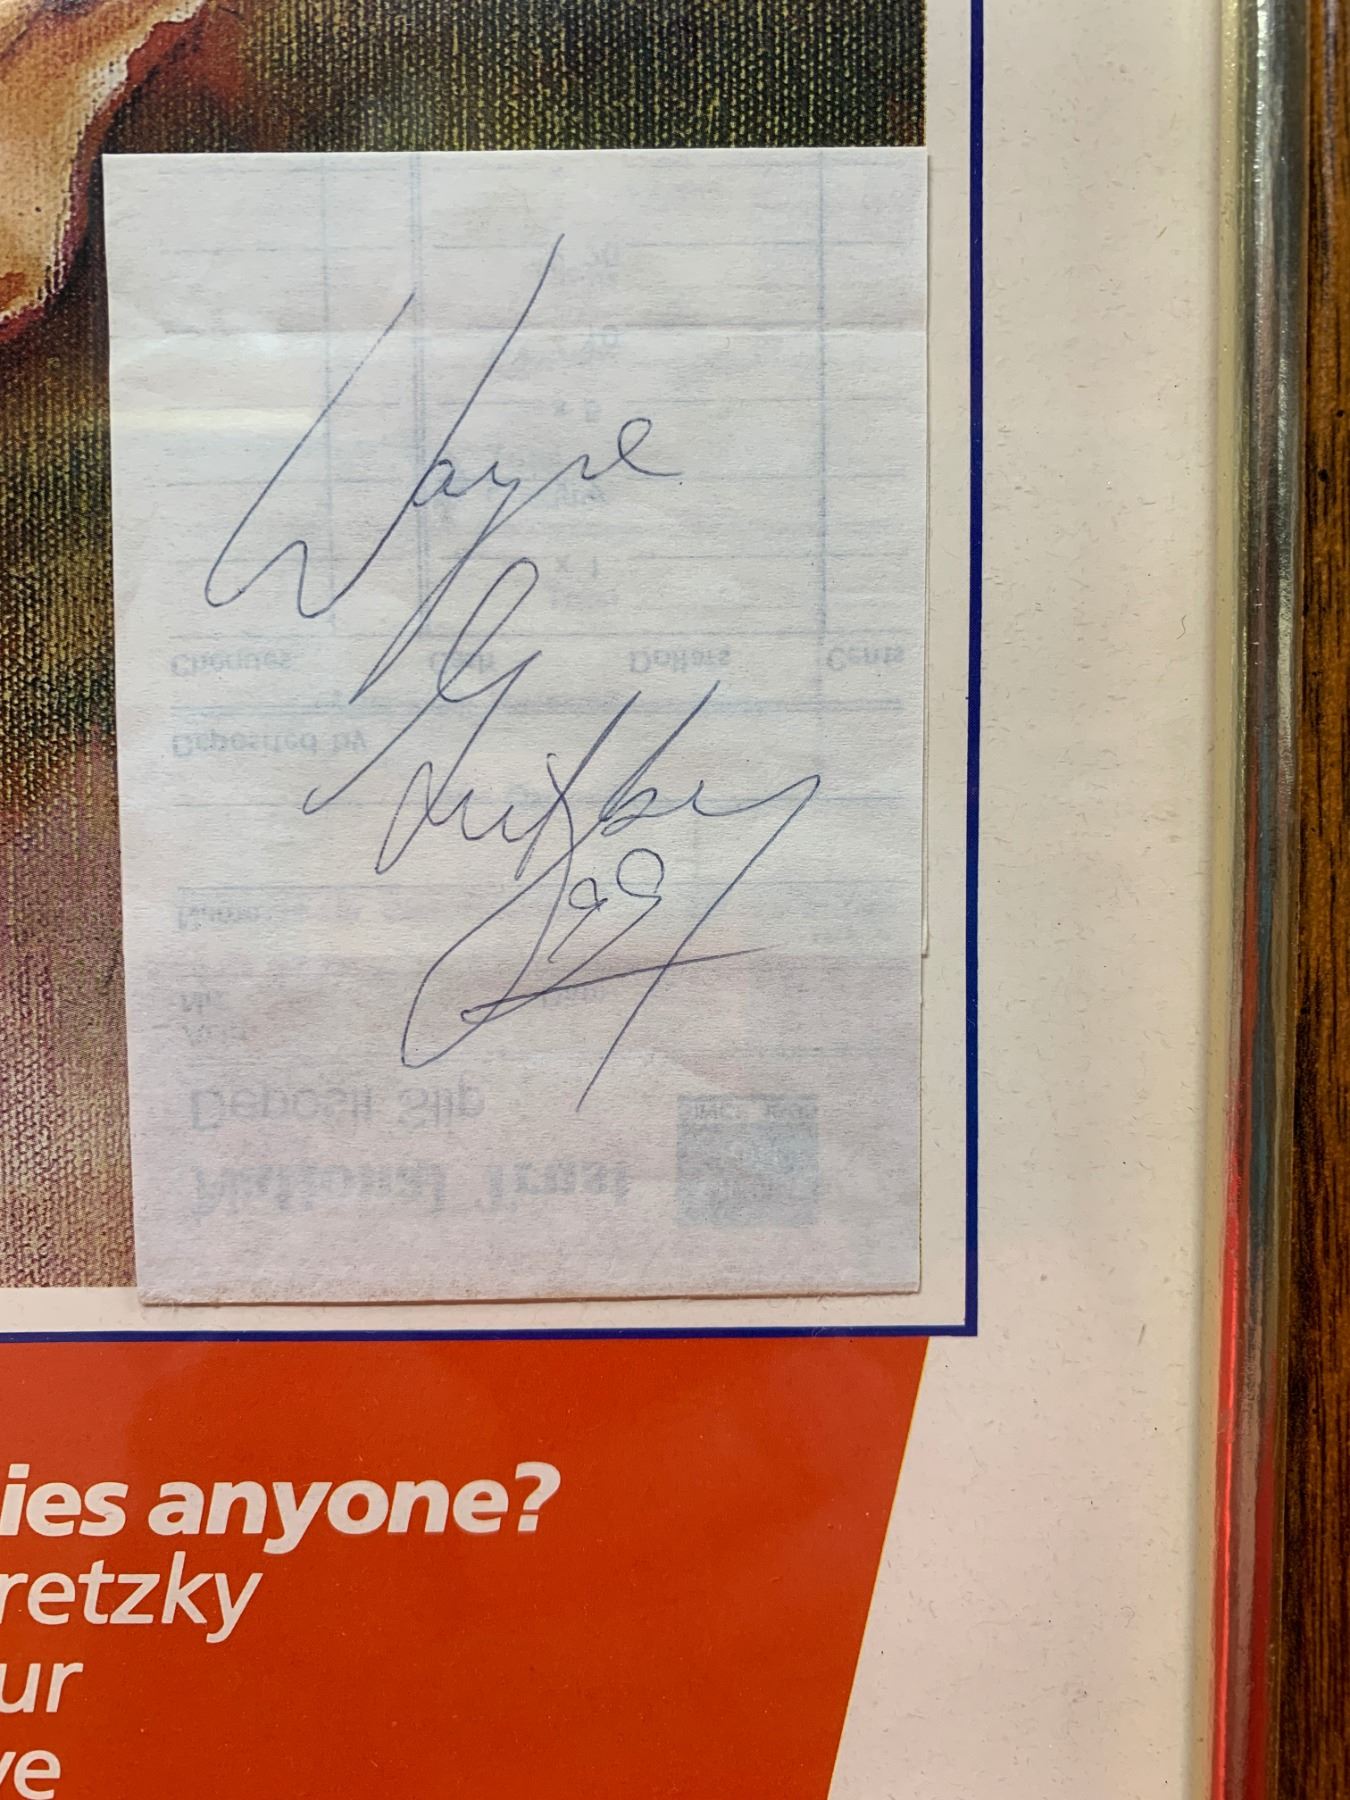 Wayne
Gretzky
99
x 5
x 1
Cheques Cash Dollars Cents
Deposited by
Deposit Slip
National Trust
ies anyone?
retzky
ur
ve